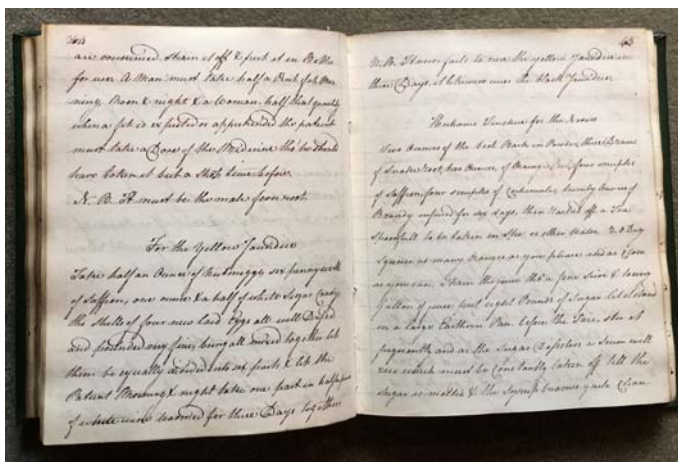 are consumed strain it off & put it in Bottles
for use A Man must take half a Pint of it Mor
ning Noon & night & a Woman half that quantity
when a fit is expected or apprehended the patient
must take a Dose of the Medicine tho he should
have taken it but a short time before
N. B. It must be the male
For the Yellow Jaundice
Take half an Ounce of Nutmegg, six pennyworth
of Saffron, one ounce & a half of white Sugar Candy
the shells of four new laid Eggs all well Dryed
and pounded very fine, being all mixed together let
them be equally divided into six parts & let the
Patient Morning & night take one part in half a pint
of white wine warmed for three Days together
63
N. B. It never fails to cure the yellow Jaundice in
three Days, it likewise cures the black Jaundice
Tincture for the
Two Ounces of the best Bark in Powder, three Drams
of Snake Root, two Ounces of Orange four scruples
of Saffron, four scruples of Cochineale, twenty Ounces of
Brandy infused for six days, then
Spoonfull to be taken in or other Water
Squeeze as many Oranges as you please and as
as you can, strain the juice thro a fine Sive & to every
Gallon of juice put eight Pounds of Sugar let it stand
in a large Earthern Pan before the Fire, stir it
frequently and as the Sugar Disolves a Scum will
rise which must be Constantly taken off till the
Sugar is melted & the Syrup becomes quite Clear